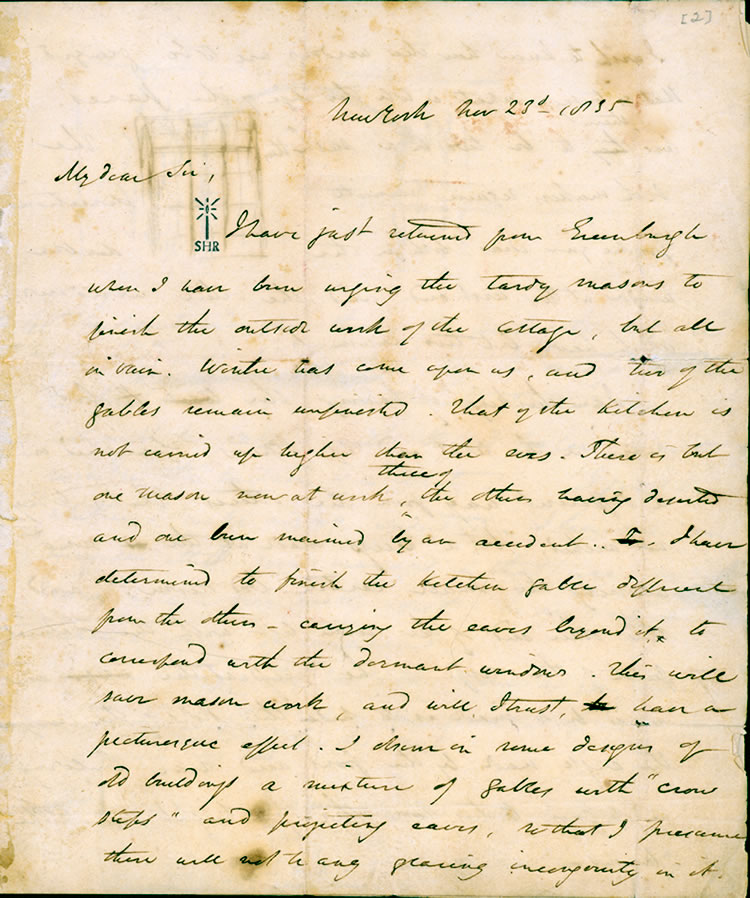 [2]
New York Nov 23d 1835
My dear Sir,
SHR
I have just returned from Greenburgh
where I have been urging the tardy masons to
finish the outside work of the cottage, but all
in vain. Winter has come upon us, and two of the
gables remain unfinished. That of the Kitchen is
not carried up higher than the eves. There is but
three of
one mason now at work, the others having deserted
and one been maimed by an accident. I have
determined to finish the Kitchen gable different
from the others – carrying the eaves beyond it, to
correspond with the dormant windows. This will
save mason work, and will, I trust, have a
picturesque effect. I observe in some designs of
old buildings a mixture of gables with "crow
steps" and projecting eaves, so that I presume
there will not be any glaring incongruity in it.